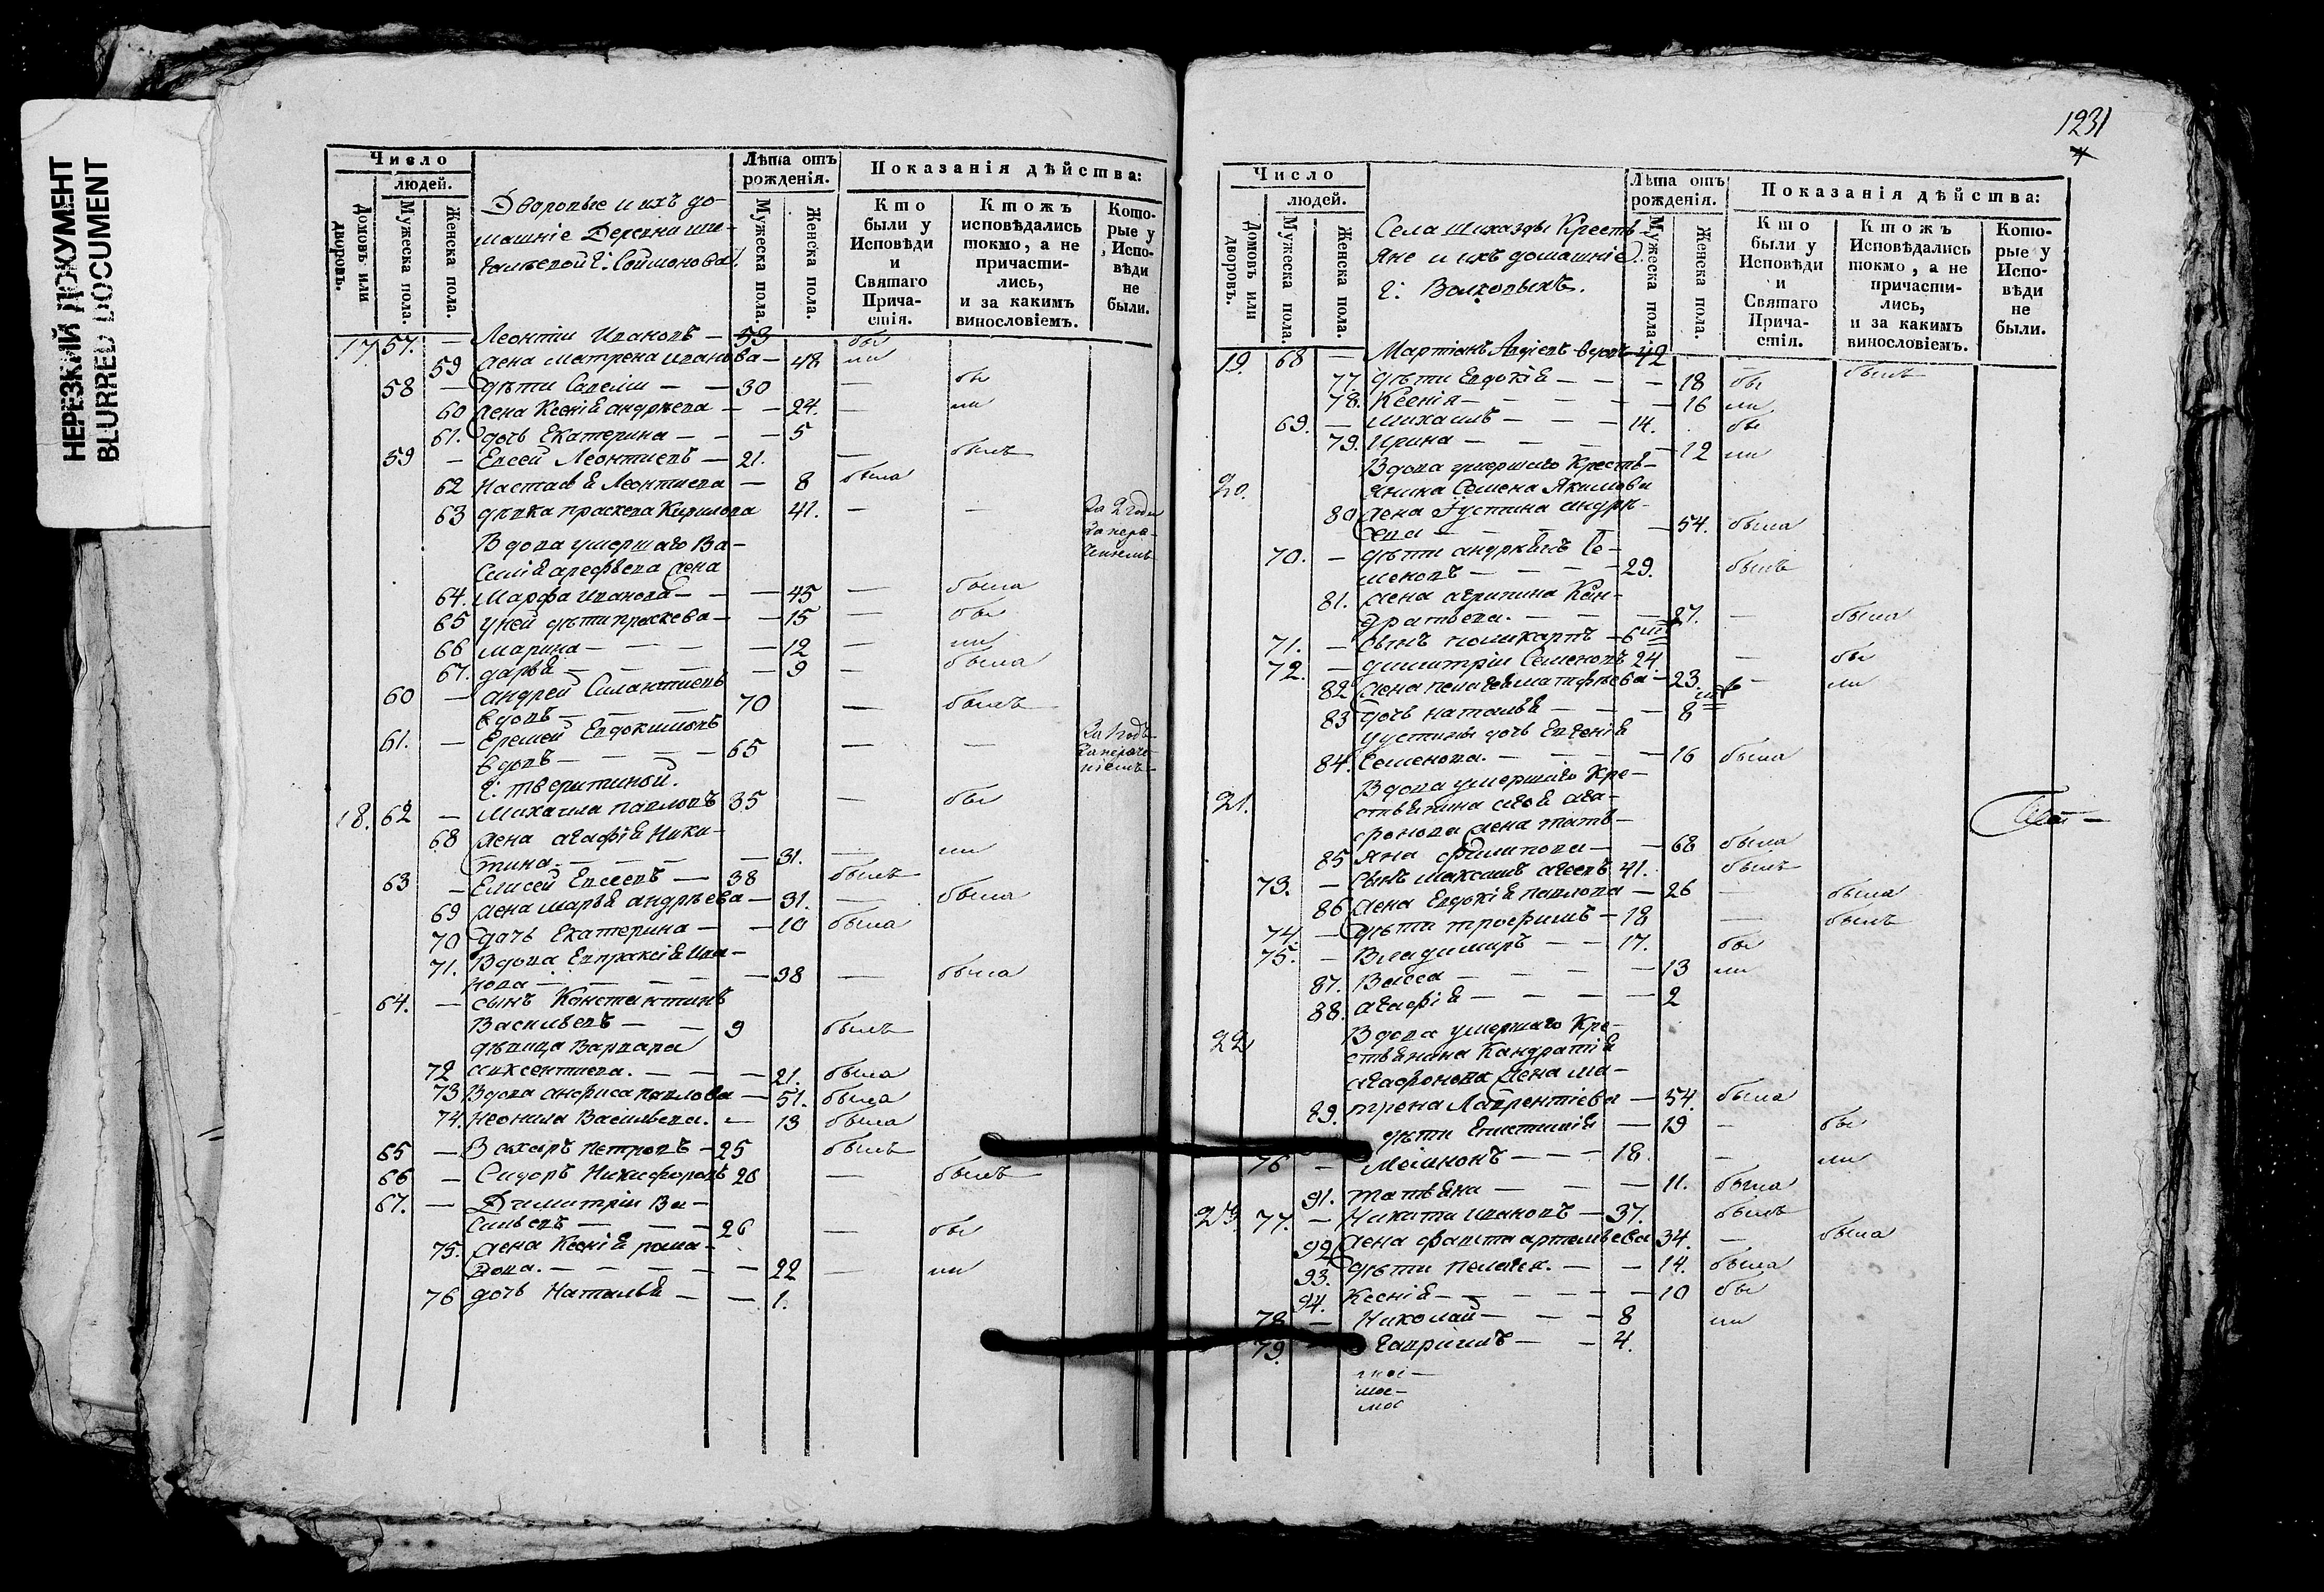 НЕРЕЗКИЙ ДОКУМЕНТ
BLURRED DOCUMENT
Число
людей.
Домовъ или дворовъ.
Мужеска пола.
Женска пола.
Дворовые и ихъ до-
машніе Деревни
Лѣта отъ рожденія.
Мужеска пола.
Женска пола.
Показанія дѣйства:
Кто были у Исповѣди и Святаго Прича- стія.
Ктожъ исповѣдались токмо, а не причасти- лись, и за какимъ винословіемъ.
Кото- рые у Испо- вѣди не были.
17 57. — Леонтіи Ивановъ — 53 бы
59 жена матрена иванова — 48 ли
58 — дѣти Савеліи — — 30 — бы
60 жена Ксенія андреева — — 24. — ли
61. дочь Екатерина — — — 5
59 — Евсей Леонтиевъ — 21. — былъ
62 Настасья Леонтиева — 8 была
63 дѣвка праскева Кирилова 41. — — За 2 года
Вдова умершаго Ва-
силія арефьева жена
64. Марфа иванова — — — 45 — была
65 у ней дѣти праскева — — 15 — бы
66 марина — — — — 12 — ли
67. дарья — — — — 9 — была
60 — андрей Силантиевъ
вдовъ — — — 70 — былъ
61. — Еремей Евдокимовъ
вдовъ — — — — 65 — — За 1 годъ
18. 62 — Михаила павловъ 35 — бы
68 жена агафія Ники-
тина. — — — — 31. — ли
63 — Елисей Евсеевъ — 38 былъ
69 жена марья андреева — 31. — была
70 дочь Екатерина — — 10 была
71. Вдова Евпраксія Ива-
нова — — — — 38 — была
64. — сынъ Константинъ
Васильевъ — — 9 былъ
дѣвица Варвара
72 — — — 21. была
73 Вдова анфиса павлова — 51. была
74. неонила Васильева. — 13 была
65 — петровъ — 25 былъ
66 — Сидоръ Никифоровъ 26 — былъ
67. — Димитріи Ва-
сильевъ — — — 26 — бы
75. жена Ксенія рома-
нова. — — — — — 22 — ли
76 дочь Наталья — — 1.
1231
Число
людей.
Домовъ или дворовъ.
Мужеска пола.
Женска пола.
Села Шиказды Кресть-
яне и ихъ домашніе
г: Волковыхъ.
Лѣта отъ рожденія.
Мужеска пола.
Женска пола.
Показанія дѣйства:
Кто были у Исповѣди и Святаго Прича- стія.
Ктожъ Исповѣдались токмо, а не причасти- лись, и за какимъ винословіемъ.
Кото- рые у Испо- вѣди не были.
19. 68 — вдовъ 42 — былъ
77. дѣти Евдокія — — — 18 бы
78. Ксенія — — — — — 16 ли
69. — михаилъ — — — 14. бы
79. Ирина — — — — 12 ли
20. Вдова умершаго Кресть-
янина Семена Якимова
80 жена Густина андре-
ева — — — — — 54. была
70. — дѣти андреянъ Се-
меновъ — — — 29. былъ
81. жена агрипина Кон-
дратьева. — — — 27. — была
71. — сынъ поликарпъ — 6
72. — димитріи Семеновъ 24. — бы
82 жена пелагея матфѣева — 23. — ли
83 дочь наталья — — — 8
у устины дочь Евгенія
84. Семенова. — — — — 16 была
21. Вдова умершаго Кре-
стьянина агея ага-
фонова жена тать-
85 яна филипова — — 68 была
73. — сынъ максимъ агеевъ 41. былъ
86 жена Евдокія павлова — 26 — была
74. — дѣти трофимъ — 18 — былъ
75. — Владимиръ — — 17. бы
87. Васса — — — — 13 ли
88. агафія — — — — 2
22 Вдова умершаго Кре-
стьянина Кандратія
агафонова жена ма-
89. трена Лаврентіева — 54. была
дѣти Епистимія — 19 — бы
76 — — — — 18. — ли
91. татьяна — — — 11. была
23. 77. — Никита ивановъ — 37. былъ
92 жена фавста артемьева 34. — была
93. дѣти пелагея. — — 14. была
94. Ксенія — — — — — 10 бы
78 — Николай — — — 8 ли
79. — гавріилъ — — 4.